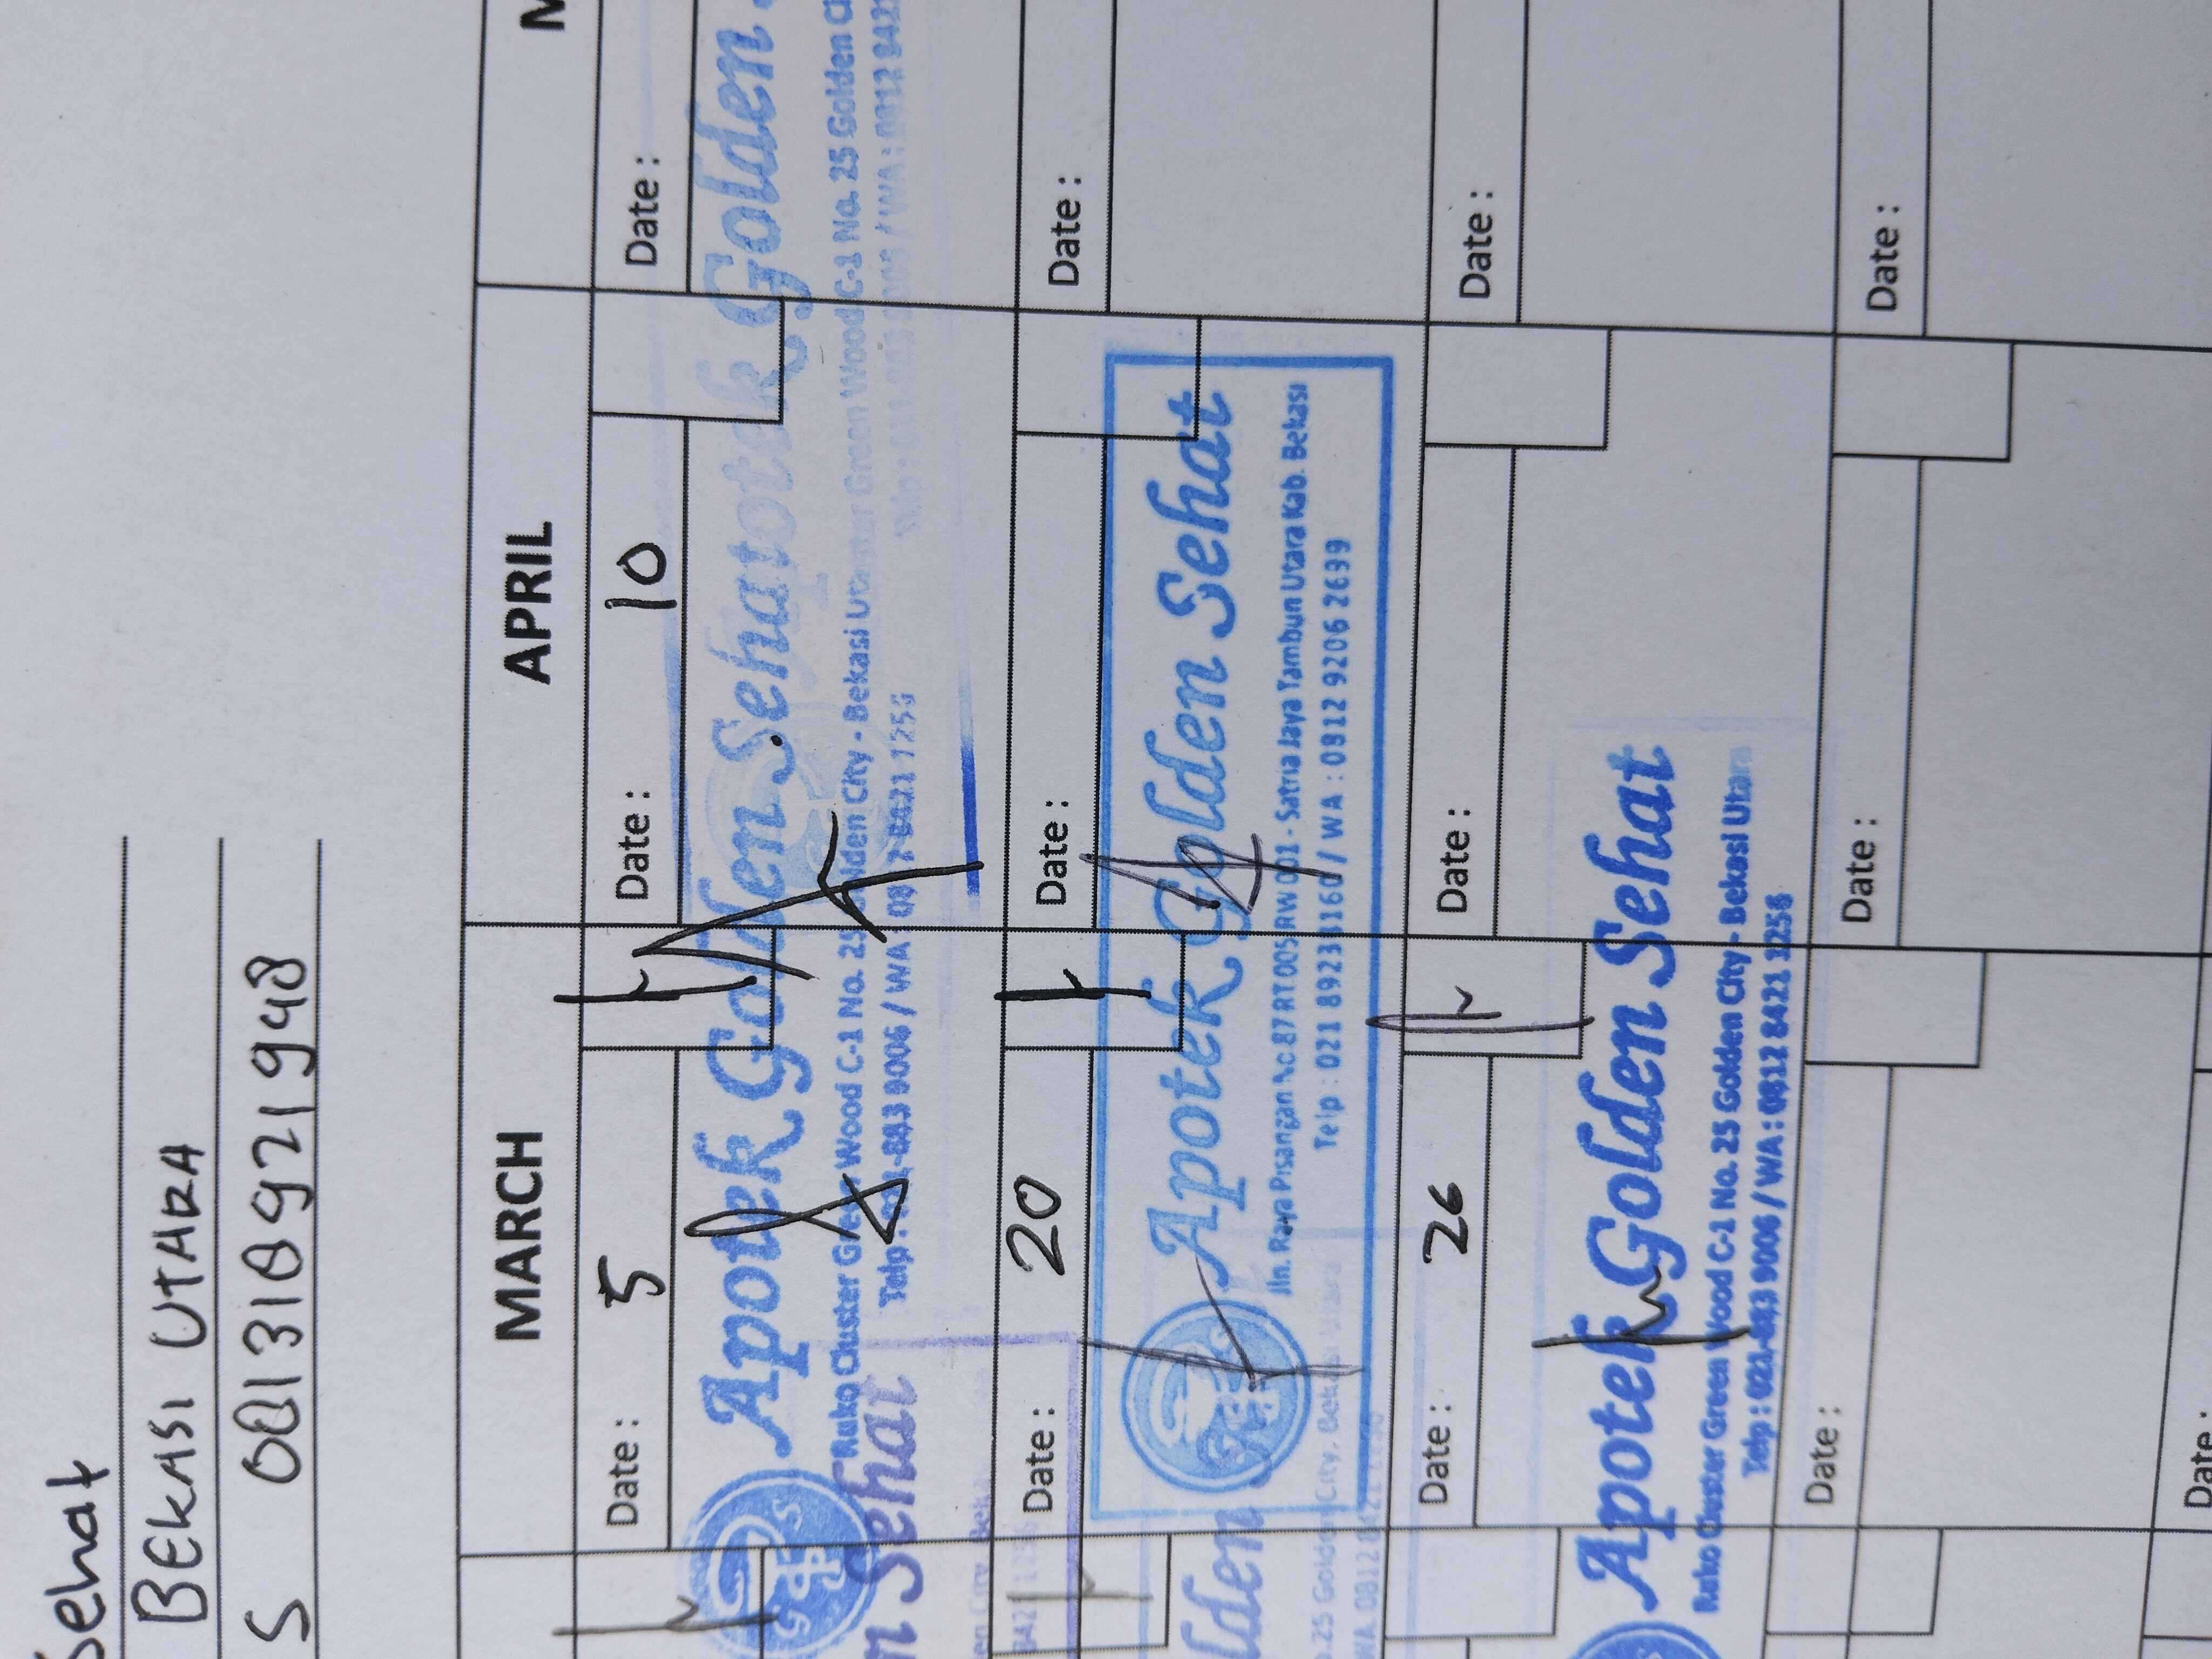 Sehat
BEKASI UTARA
S 081318921948
MARCH
APRIL
Date : 5
Date : 10
Date :
Apotek Golden Sehat
Ruko Cluster Green Wood C-1 No. 25 Golden City - Bekasi Utara
Apotek Golden
Wood C-1 No. 25 Golden
Sehat
Date : 20
Date :
Date :
Apotek Golden Sehat
Jln. Raya Pisangan No 87 RT 005 RW 001 - Satria Jaya Tambun Utara Kab. Bekasi
Telp : 021 8923 8160 / WA : 0812 9206 2699
Date : 26
Date :
Date :
Apotek Golden Sehat
Ruko Cluster Green Wood C-1 No. 25 Golden City - Bekasi Utara
Telp : 021-883 9006 / WA : 0812 8421 1256
Date :
Date :
Date :
Date :